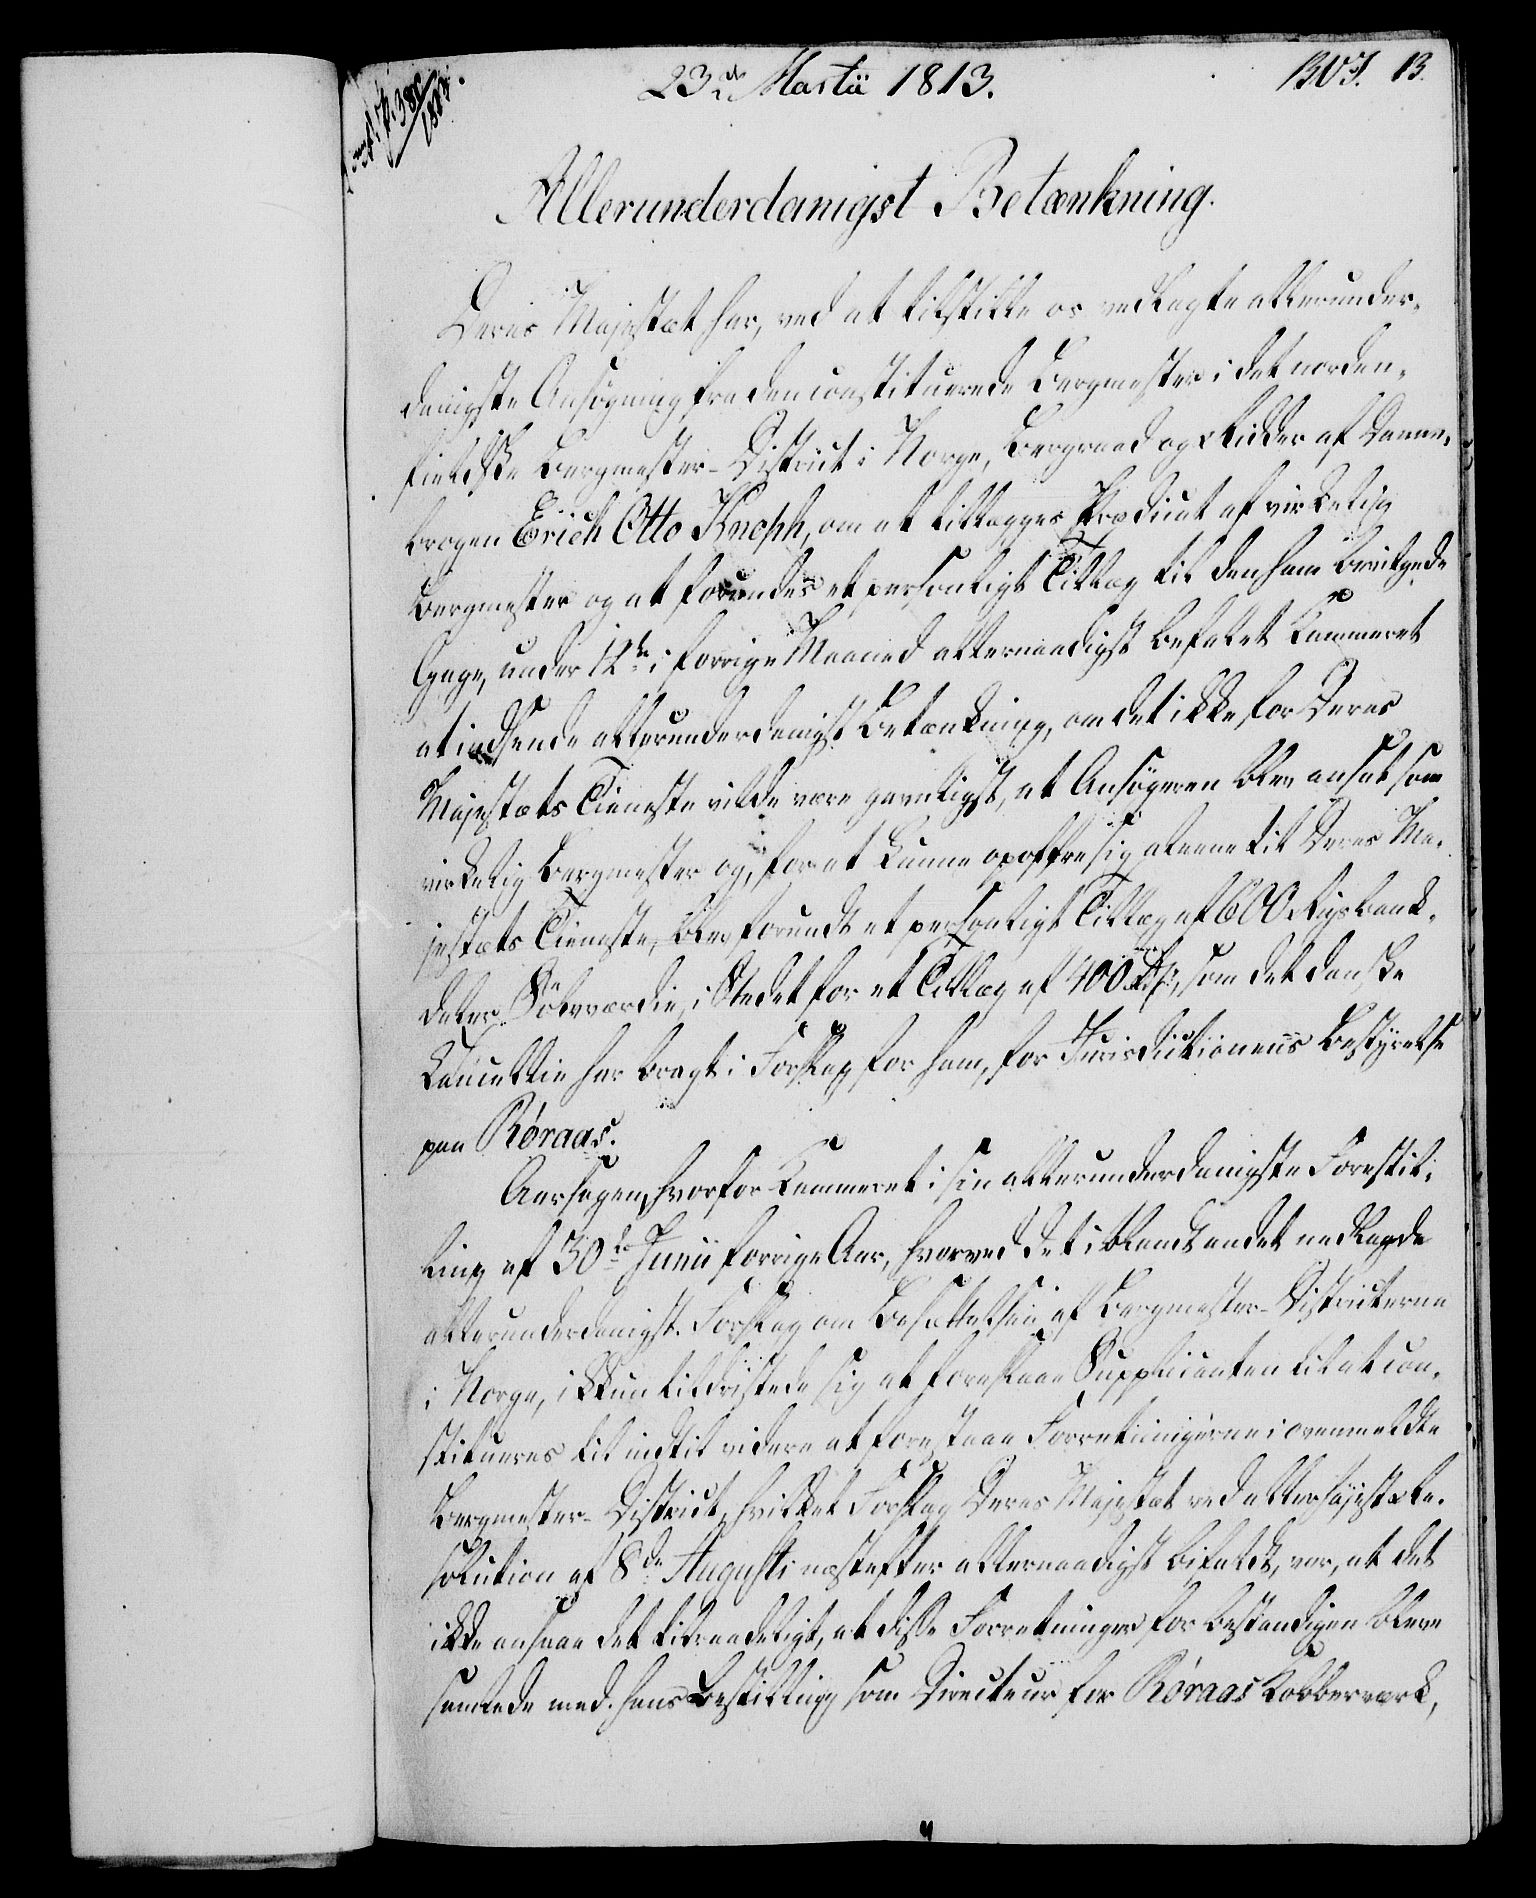 23de Martii 1813.
Allerunderdanigst Betænkning.
Deres Majestæt har, ved at tilstille os vedlagte allerunder-
danigste Ansøgning fra den constituerede Bergmester i det norden-
fieldske Bergmester-District i Norge, Bergraad og Ridder af Danne-
brogen Erich Otto Knoph, om at tillægges Prædicat af virkelig
Bergmester og at forundes et personligt Tillæg til den ham bevilgede
Gage, under 12te i forrige Maaned allernaadigst befalet Kammeret
at indsende allerunderdanigst Betænkning, om det ikke for Deres
Majestæts Tieneste vilde være gavnligst, at Ansøgeren blev ansat som
virkelig Bergmester og, for at kunne opoffre sig alene til Deres Ma-
jestæts Tieneste, blev forundt et personligt Tillæg af 600 Rigsbank-
daler Sølvværdie, i Stedet for et Tillæg af 400 som det danske
Cancellie har bragt i Forslag for ham, for Jurisdictionens Bestyrelse
paa Røraas.
Aarsagen, hvorfor Kammeret i sin allerunderdanigste Forestil-
ling af 30te Junii forrige Aar, hvorved det iblandt andet nedlagde
allerunderdanigst Forslag om Besættelsen af Bergmester-Districterne
i Norge, ikkun tildristede sig at foreslaae Supplicanten til at con-
stitueres til indtil videre at forestaae Forretningerne i ovenmeldte
Bergmester-District, hvilket Forslag Deres Majestæt ved allerhøjeste Re-
solution af 8de Augusti næstefter allernaadigst bifaldt, var, at det
ikke ansaae det tilraadeligt, at disse Forretninger for bestandigen bleve
samlede med hans Bestilling som Directeur for Røraas Kobberværk,